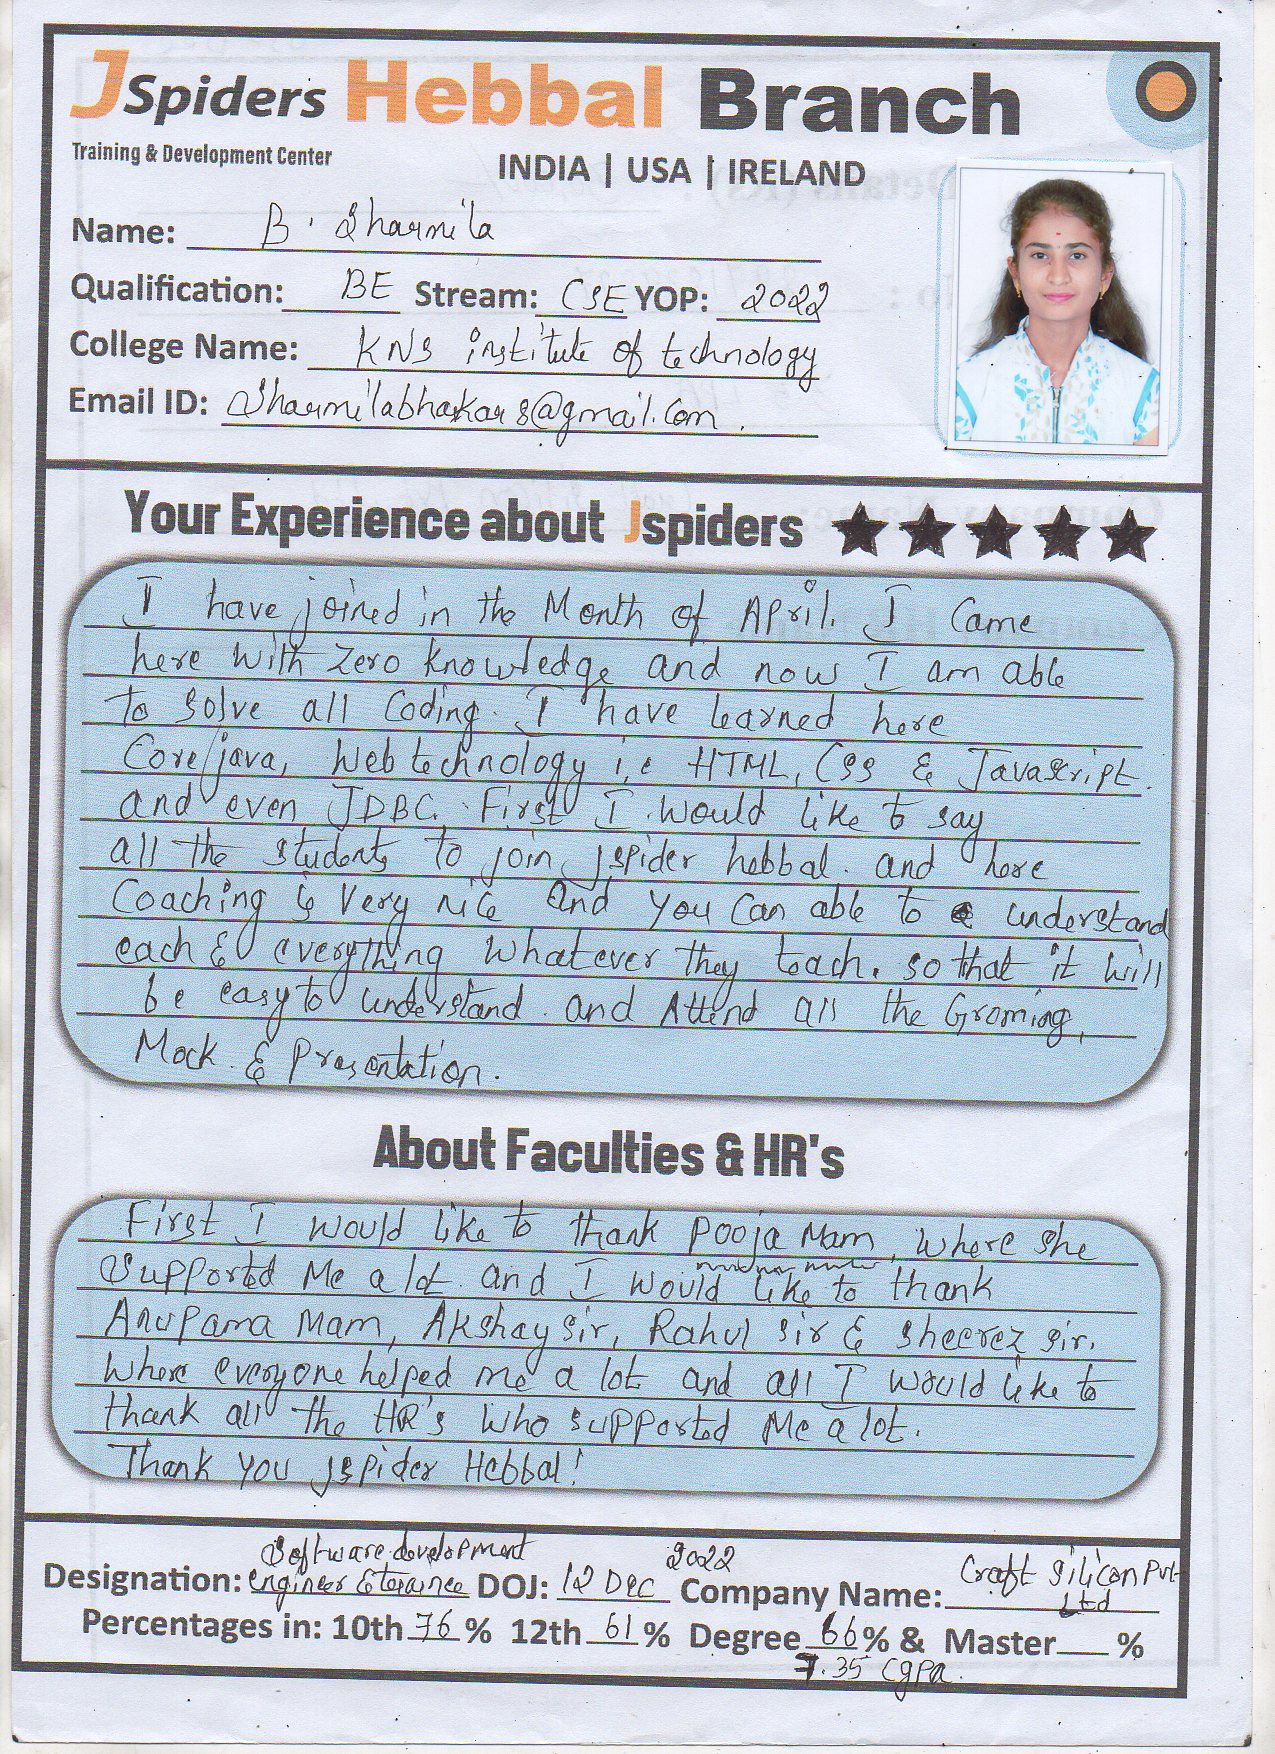 JSpiders Hebbal Branch
Training & Development Center
INDIA | USA | IRELAND
Name: B. Sharmila
Qualification: BE Stream: CSE YOP: 2022
College Name: KNS institute of technology
Email ID: Sharmilabhaskars@gmail.com.
Your Experience about Jspiders
I have joined in the Month of April. I came
here with zero knowledge and now I am able
to solve all coding. I have learned here
Core java, Web technology i,e HTML, CSS & Javascript.
and even JDBC. First I would like to say
all the students to join jspider hebbal. and here
Coaching is very nice and you can able to understand
each & everything whatever they teach. so that it will
be easy to understand. and Attend all the Groming,
Mock & Presentation.
About Faculties & HR's
First I would like to thank Pooja Mam, where she
Supported Me a lot. and I would like to thank
Anupama Mam, Akshay sir, Rahul sir & sheerez sir.
Where everyone helped me a lot and all I would like to
thank all the HR's who supported Me a lot.
Thank you jspider Hebbal!
Software development 2022 Craft Silicon Pvt
Designation: engineer & DOJ: 12 Dec Company Name: Ltd
Percentages in: 10th 76 % 12th 61 % Degree 66 % & Master %
7.35 Cgpa.